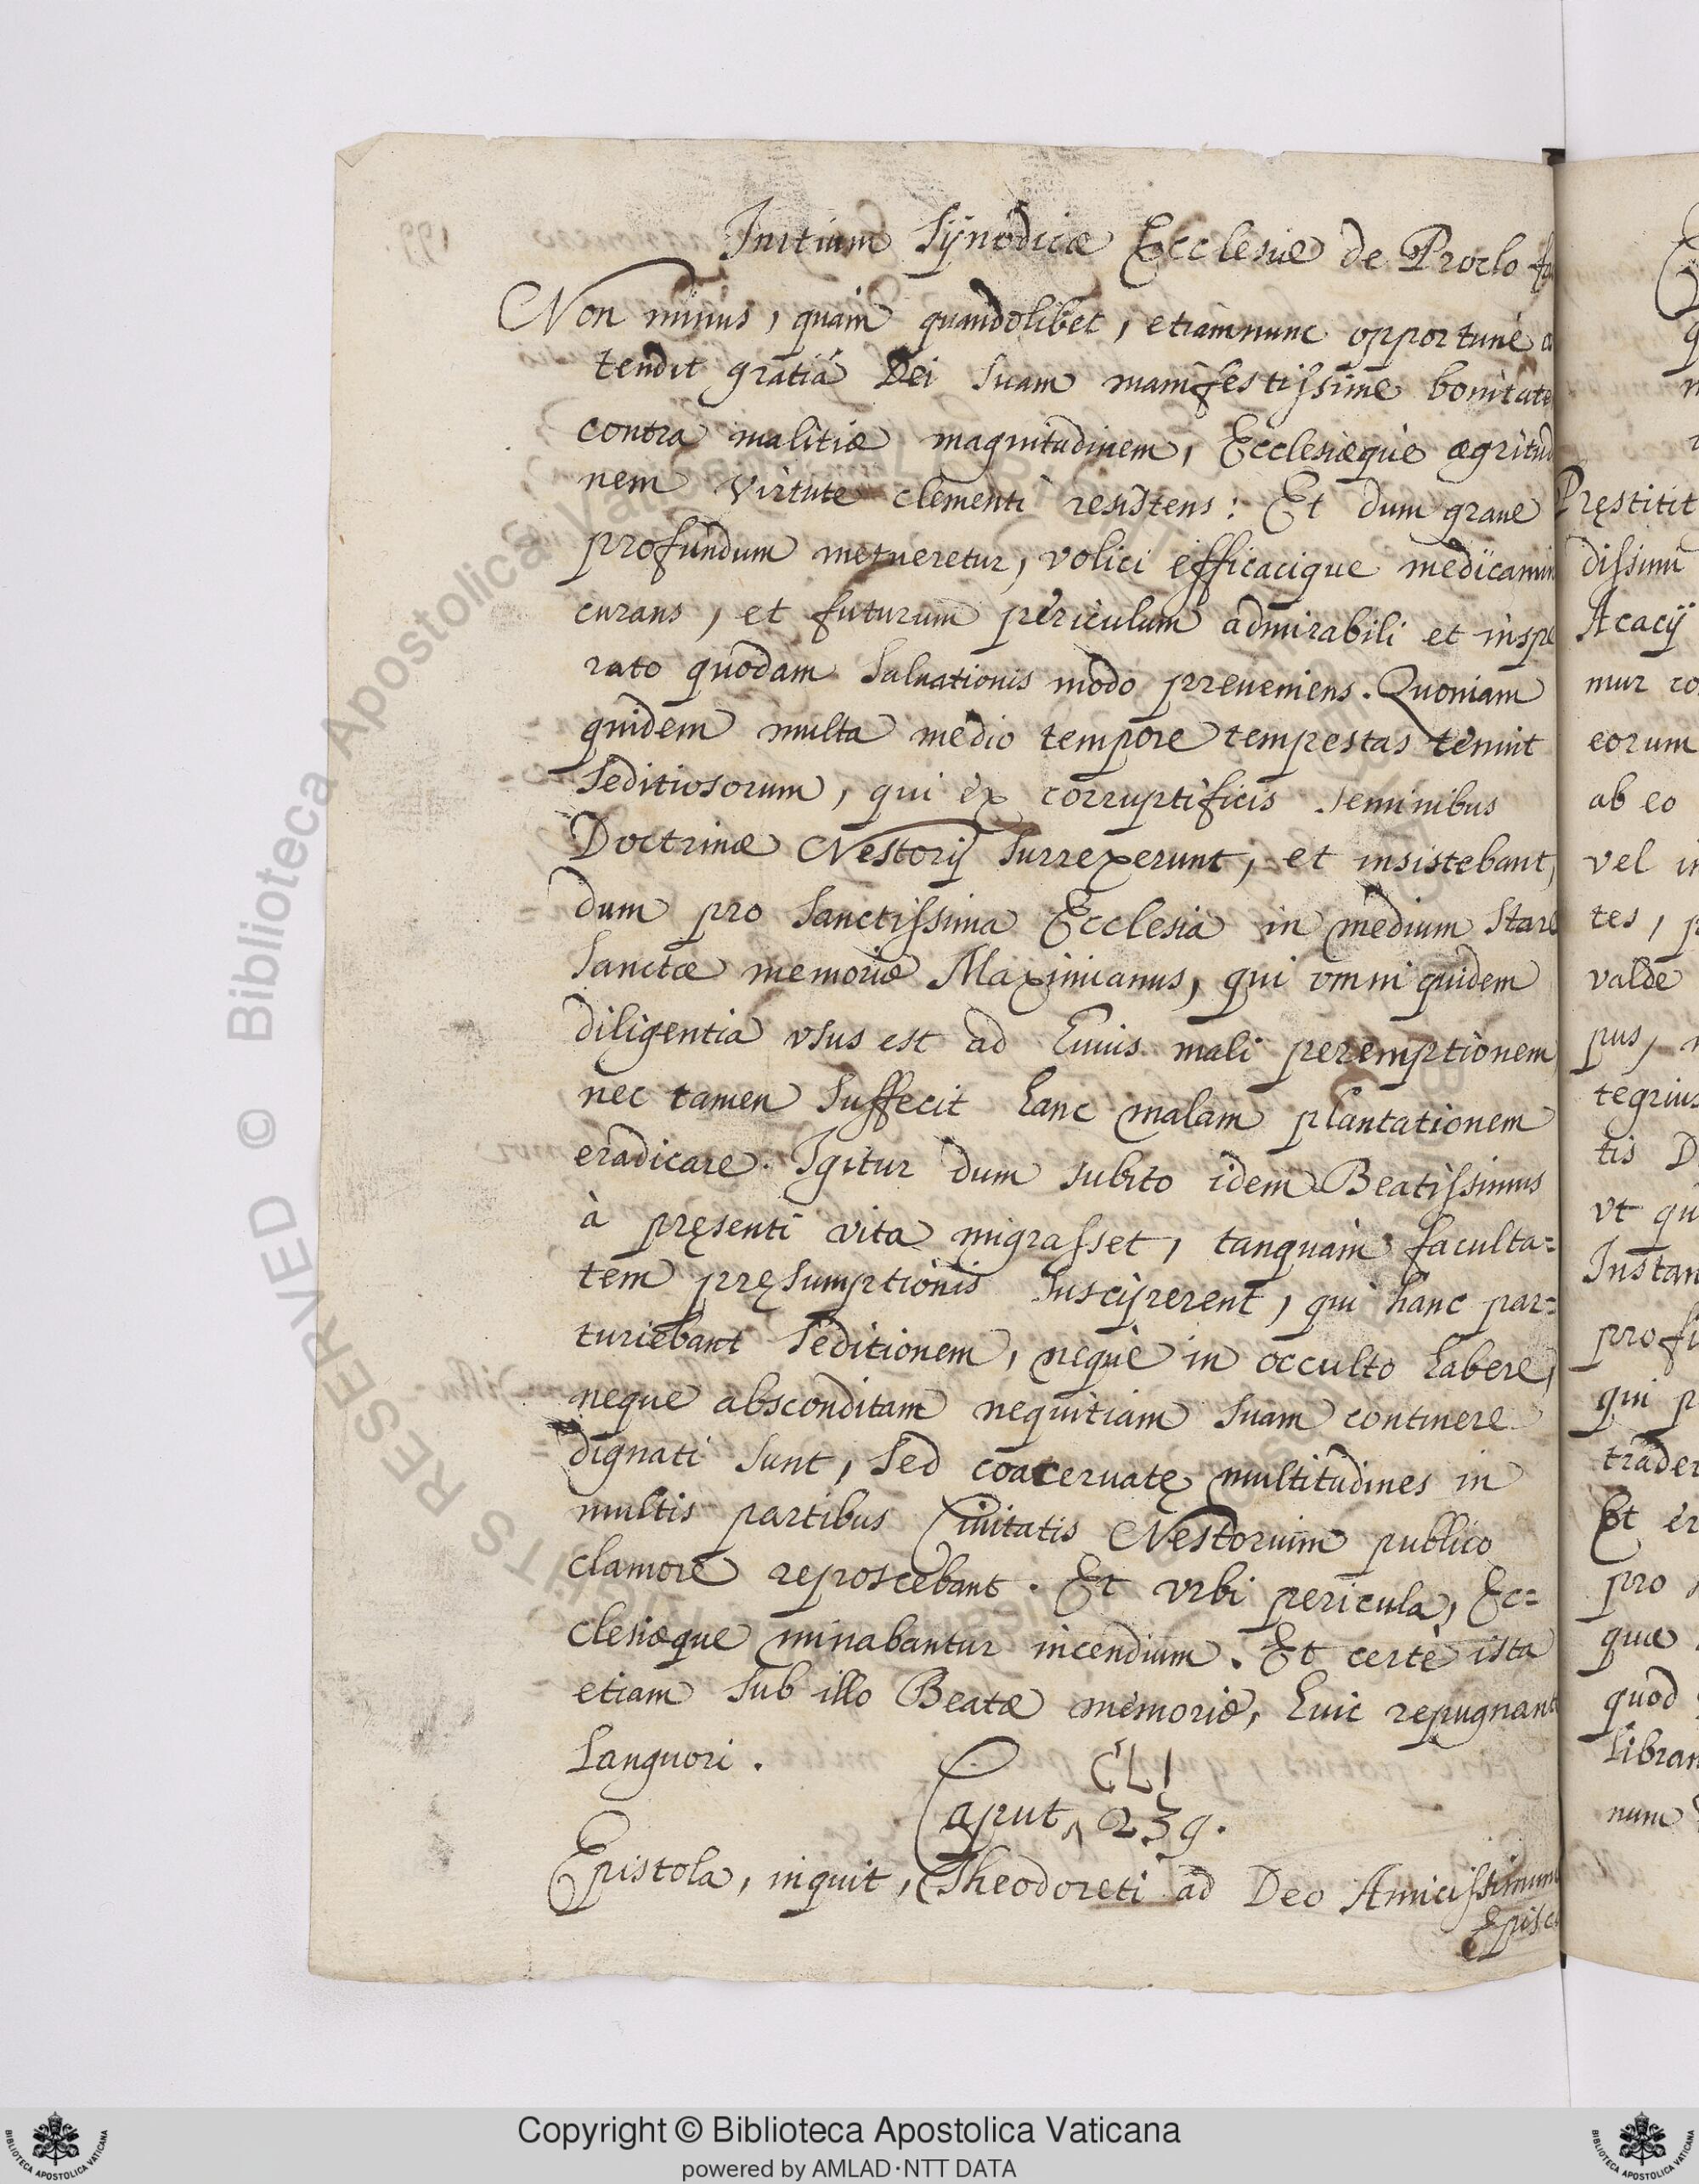 Initium Sÿnodicæ Ecclesiæ de Proclo
Non minus, quàm quandolibet, etiamnunc opportunè
tendit gratiâ Dei suam manifestissime bonitate
contra malitiæ magnitudinem, Ecclesiæquè ægritud
nem virtute clementi resistens: Et dum graue
profundum metueretur, volici efficacique medicamin
curans, et futurum periculum admirabili et inspe
rato quodam saluationis modo preueniens. Quoniam
quidem multa medio tempore tempestas tenuit
seditiosorum, qui ex corruptificis seminibus
Doctrinæ Nestorij surrexerunt, et insistebant,
dum pro sanctissima Ecclesia in medium stare
sanctæ memoriæ Maximianus, qui omni quidem
diligentia vsus est ad huius mali peremptionem
nec tamen suffecit hanc malam plantationem
eradicare. Igitur dum subito idem Beatissimus
à pręsenti vita migrasset, tanquàm faculta=
tem pręsumptionis suscÿrerent, qui hanc par=
turiebant seditionem, nequè in occulto habere,
neque absconditam nequitiam suam continere
dignati sunt, sed coaceruatę multitudines in
multis partibus Ciuitatis Nestorium publico
clamore reposcebant. Et vrbi pericula, Ec=
clesiæque minabantur incendium. Et certè ista
etiam sub illo Beatæ memoriæ, huic repugnant
languori.
CLI
Caput, 239.
Epistola, inquit, Theodoreti ad Deo Amicissimum
Episc
Pręstitit
dissimi
Acacij
mur co
eorum
ab eo
vel in
tes, p
valde
pus,
tegrius
tis D
vt qu
Instan
profi
qui p
trader
Et er
pro
quæ
quod
libran
num
© Biblioteca Apostolica Vaticana
RIGHTS RESERVED
Copyright © Biblioteca Apostolica Vaticana
powered by AMLAD·NTT DATA
BIBLIOTECA APOSTOLICA VATICANA
BIBLIOTECA APOSTOLICA VATICANA